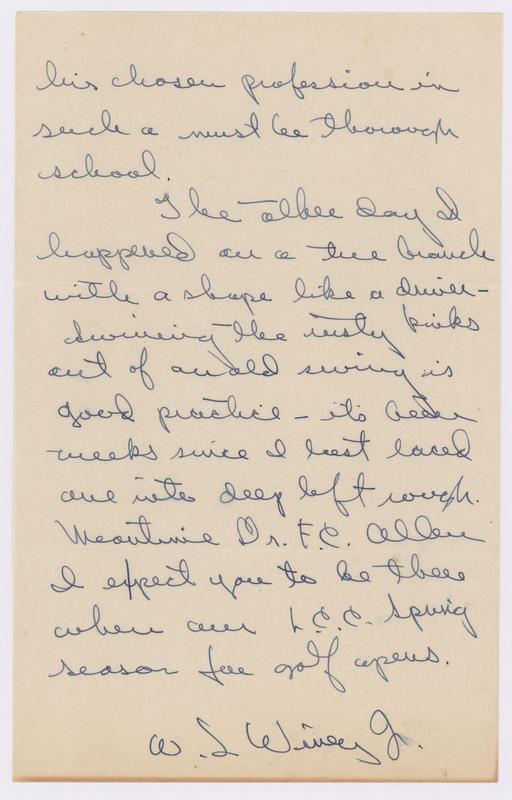 his chosen profession in
such a must be thorough
school.
The other day I
happened on a tree branch
with a shape like a driver-
Swinging the rusty kinks
out of an old swing is
good practice - it's been
weeks since I last laced
one into deep left rough.
Meantime Dr. F.C. Allen
I expect you to be there
when our L.C.C. Spring
season for golf opens.
W. S. Winey Jr.